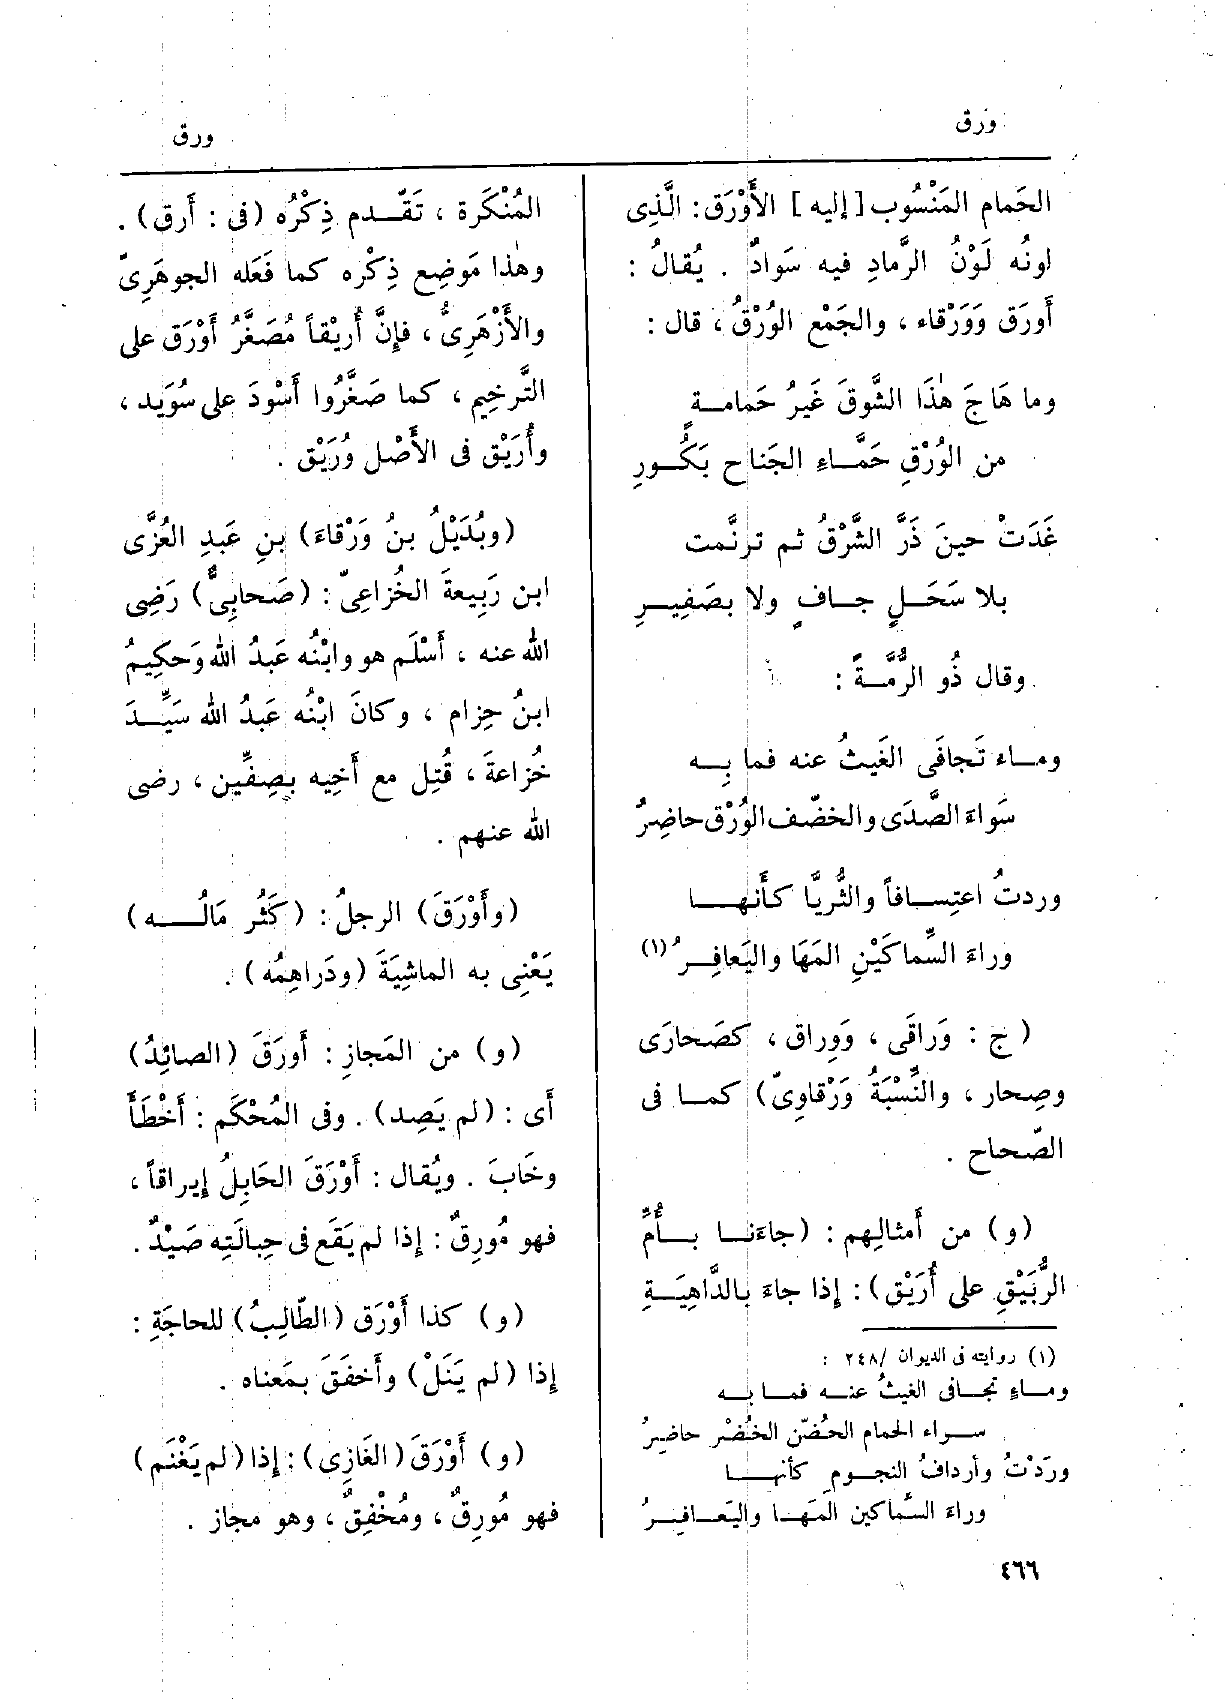 ورق
ورق
الحَمام المَنْسُوب [إليه] الأَوْرَق: الَّذِى
لونُه لَوْنُ الرَّمادِ فيه سَوادٌ . يُقالُ :
أَورَق وَوَرْقاء ، والجَمْع الوُرْقُ ، قال :
وما هَاجَ هٰذَا الشَّوقَ غَيرُ حَمامـةٍ
من الوُرْقِ حَمَّـاءِ الجَناحِ بَكُـورِ
غَدَتْ حينَ ذَرَّ الشَّرْقُ ثم ترنَّمت
بلا سَحَلٍ جـافٍ ولا بصَفِيـرِ
وقال ذُو الرُّمَّـة :
ومـاء تَجافَى الغَيثُ عنه فما بِـه
سَواءَ الصَّدَى والخضّف الوُرْق حاضِرُ
وردتُ اعتِسـافاً والثُّريَّا كأَنهـا
وراءَ السِّماكَيْنِ المَهَا واليَعافِـرُ (١)
( ج : وَراقَى ، وَوِراق ، كصَحارَى
وصِحار ، والنِّسْبَةُ وَرْقاوِىّ) كمـا فى
الصّحاح .
(و) من أَمثالِهم : (جاءَنـا بـأُمِّ
الرُّبَيْقِ على أُرَيْق) : إذا جاءَ بالدَّاهِيَـةِ
(١) روايته فى الديوان /٢٤٨ :
ومـاءٍ تجـافى الغيثُ عنـه فمـا بـه
سـراء الحمام الحُضّن الخُضْر حاضِرُ
ورَدْتُ وأردافُ النجـومِ كأنهـا
وراءَ السَّماكين المَهـا واليَعـافِـرُ
٤٦٦
المُنْكَرة ، تَقَـدم ذِكْرُه (فى : أَرق) .
وهٰذا مَوضِع ذِكْرِه كما فَعَله الجوهَرِىّ
والأَزْهَرِىُّ ، فإنَّ أُرَيْقاً مُصَغَّرُ أَوْرَق على
التَّرخِيم ، كما صَغَّرُوا أَسْودَ على سُوَيد ،
وأُرَيْق فى الأَصْل وُرَيْق .
(وبُدَيْلُ بنُ وَرْقاءَ) بنِ عَبدِ العُزَّى
ابن رَبِيعةَ الخُزاعِىّ : (صَحابِىٌّ) رَضِى
الله عنه ، أَسْلَم هو وابْنُه عَبدُ الله وَحكِيمُ
ابنُ حِزام ، وكانَ ابْنُه عَبدُ الله سَيِّـدَ
خُزاعةَ ، قُتِل مع أَخِيه بصِفِّين ، رضى
الله عنهم .
(وأَوْرَقَ) الرجلُ : (كَثُر مَالُـه)
يَعْنِى به الماشِيَةَ (ودَراهِمُه) .
(و) من المَجازِ : أَورَقَ (الصائِدُ)
أَى : (لم يَصِد) . وفى المُحْكَم : أَخْطَأَ
وخَابَ . ويُقال : أَوْرَقَ الحَابِلُ إيراقاً ،
فهو مُورِقٌ : إذا لم يَقَع فى حِبالَتِه صَيْدٌ .
(و) كذا أَوْرَق (الطّالِبُ) للحاجَةِ :
إذا (لم يَنَلْ) وأَخفَقَ بمَعناه .
(و) أَوْرَقَ (الغَازِى) : إذا (لم يَغْنَم)
فهو مُورِقٌ ، ومُخْفِقٌ ، وهو مجاز .